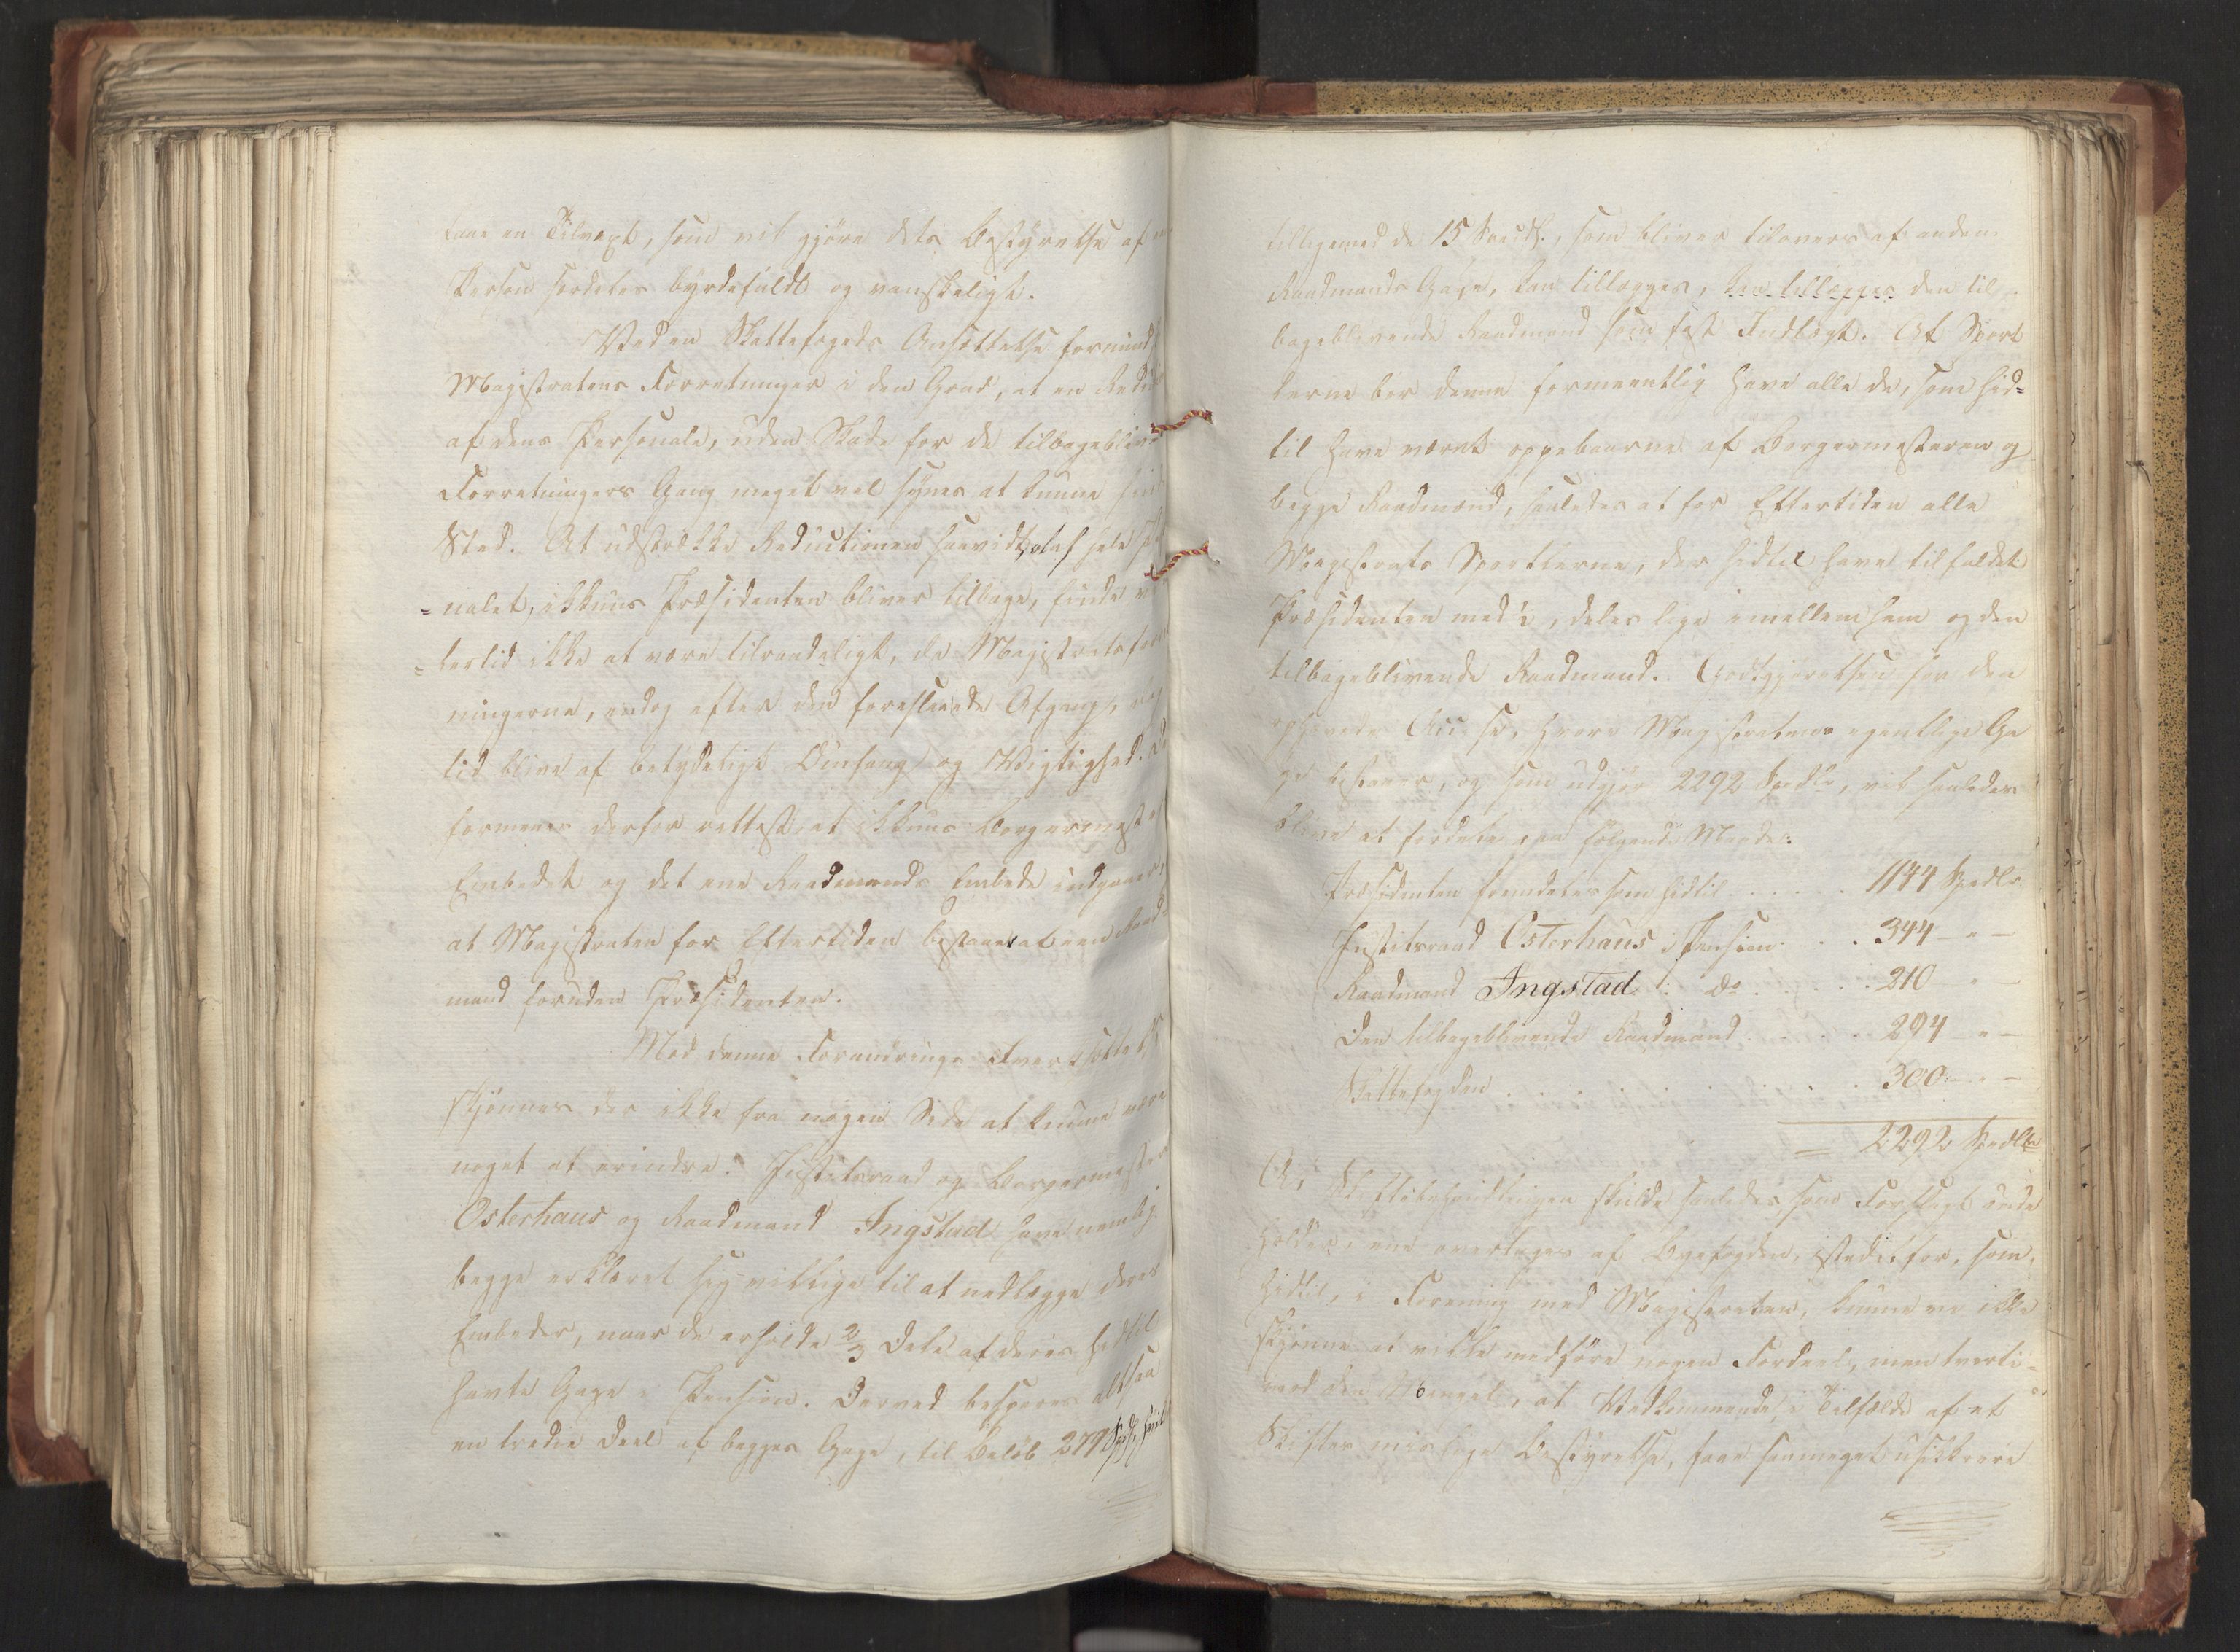 faae en Tilvext, som vil gjøre dets Bestyrelse af
Person særdeles byrdefuldt og vanskeligt.
Ved en Skattefogeds Ansættelse formind
Magistratens Forretninger i den Grad, at en Redu
af dens Personale, uden Skade for de tilbageblive
Forretningers Gang meget vel synes at kunne finde
Sted. At udstrække Reductionen saavidt, at af hele
nalet, ikkuns Præsidenten bliver tilbage, finde vi
lertid ikke at være tilraadeligt, da Magistratsfor
ningerne, endog efter den forestaaende Afgang,
tid blive af betydeligt Omfang og Vigtighed. Det
formenes derfor rettest, at ikkuns Borgermester
Embedet og det ene Raadmands Embede indgaaer,
at Magistraten for Eftertiden bestaaer af een Raad
mand foruden Præsidenten.
Mod denne Forandrings Iværksættelse
skjønnes der ikke fra nogen Side at kunne være
noget at erindre. Justitsraad og Borgermester
Osterhaus og Raadmand Ingstad have nemlig
begge erklæret sig villige til at nedlægge deres
Embeder, naar de erholde 2/3 Dele af deres hidtil
havte Gage i Pension. Derved besparer altsaa
en tredie Deel af begges Gage, til Beløb 279 Spd, hvilke
tilligemed de 15 Spd., som bliver tilovers af anden
Raadmands Gage, kan tillægges, kan tillægges den til
bageblivende Raadmand som fast Indtægt. Af Sport
lerne bør denne formeentlig have alle de, som hid=
til have været oppebaarne af Borgermesteren og
begge Raadmænd, saaledes at for Eftertiden alle
Magistrats Sportlerne, der hidtil have tilfaldet
Præsidenten med ½, deles lige imellem ham og den
tilbageblivende Raadmand. Godtgjørelsen for den
ophævede Accise, hvori Magistratens egentlige Ga
ge bestaaer, og som udgjør 2292 Spdlr, vil saaledes
blive at fordele paa følgende Maade:
Præsidenten fremdeles som hidtil . . . . . 1144 Spdlr
Justitsraad Osterhaus i Pension . . . 344 — " —
Raadmand Ingstad i do . . . . . 210 " —
Den tilbageblivende Raadmand . . . . . 294 — " —
Skattefogden . . . . . . . . . 300 — " —
= 2292 Spdlr
At Skiftebehandlingen skulde saaledes som Forslaget inde
holder, ene overtages af Byefogden, istedetfor, som
hidtil, i Forening med Magistraten, kunne vi ikke
skjønne at ville medføre nogen Fordeel, men tverti=
mod den Mangel, at Vedkommende, i Tilfælde af et
Skiftes mislige Bestyrelse, faae saameget usikkrere